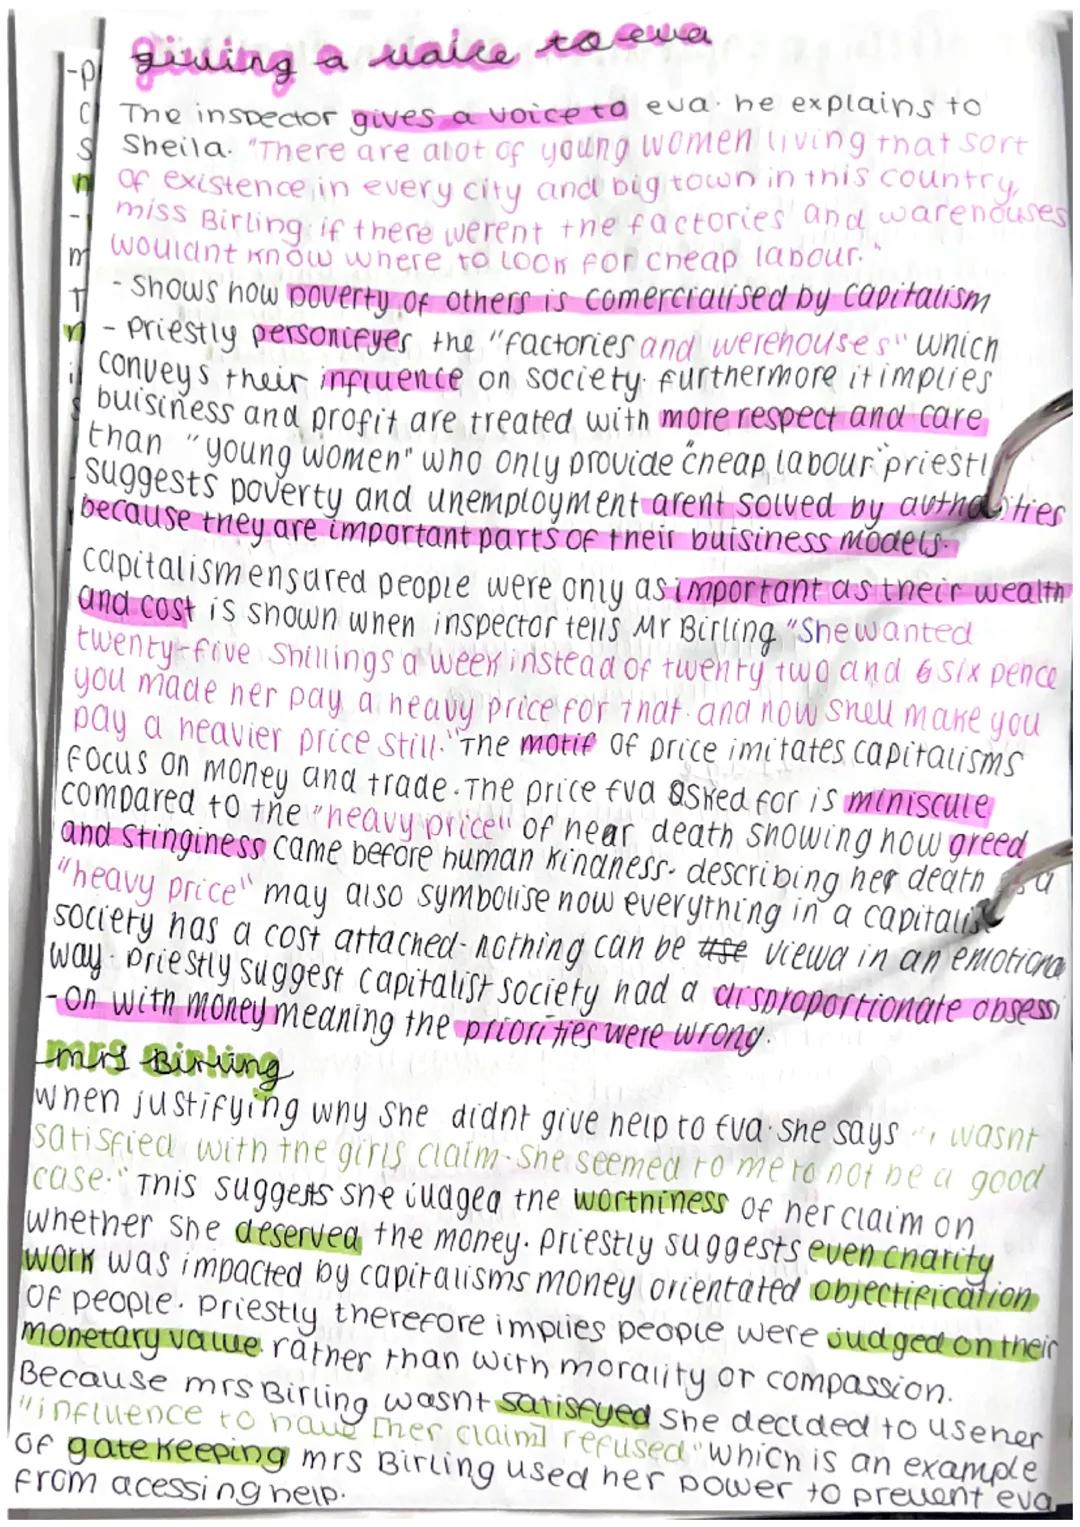 giving a voice to eva
The inspector gives a voice to eva. he explains to
Sheila. "There are alot of young women living that sort
of existence in every city and big town in this country,
miss Birling. if there werent the factories and warehouses
wouldnt know where to look for cheap labour."
- Shows how poverty of others is comercialised by capitalism
- Priestly personifyes the "factories and werehouses" which
conveys their influence on society. furthermore it implies
buisiness and profit are treated with more respect and care
than "young women" who only provide cheap labour priestl
suggests poverty and unemployment arent solved by authorities
because they are important parts of their buisiness models.
capitalism ensured people were only as important as their wealth
and cost is shown when inspector tells Mr Birling "She wanted
twenty-five Shillings a week instead of twenty two and six pence
you made her pay a heavy price for that. and now shell make you
pay a heavier price still." The motif of price imitates capitalisms
focus on money and trade. The price Eva asked for is miniscule
compared to the "heavy price" of hear death showing how greed
and stinginess came before human kindness. describing her death as a
"heavy price" may also symbolise how everything in a capitalist
society has a cost attached - nothing can be use viewd in an emotiona
way. Priestly suggest capitalist society had a disproportionate obsessi
-on with money meaning the priorities were wrong.
mrs Birling
when justifying why she didnt give help to Eva. she says "i wasnt
satisfied with the girls claim-she seemed to me to not be a good
case." This suggests she judged the worthiness of her claim on
whether she deserved the money. Priestly suggests even charity
work was impacted by capitalisms money orientated objectification
of people. Priestly therefore implies people were judged on their
monetary value. rather than with morality or compassion.
Because mrs Birling wasnt satisfyed she decided to use her
"influence to have [her claim] refused" which is an example
of gatekeeping mrs Birling used her power to prevent eva
from acessing help.
-p
C
S
n
-
m
T